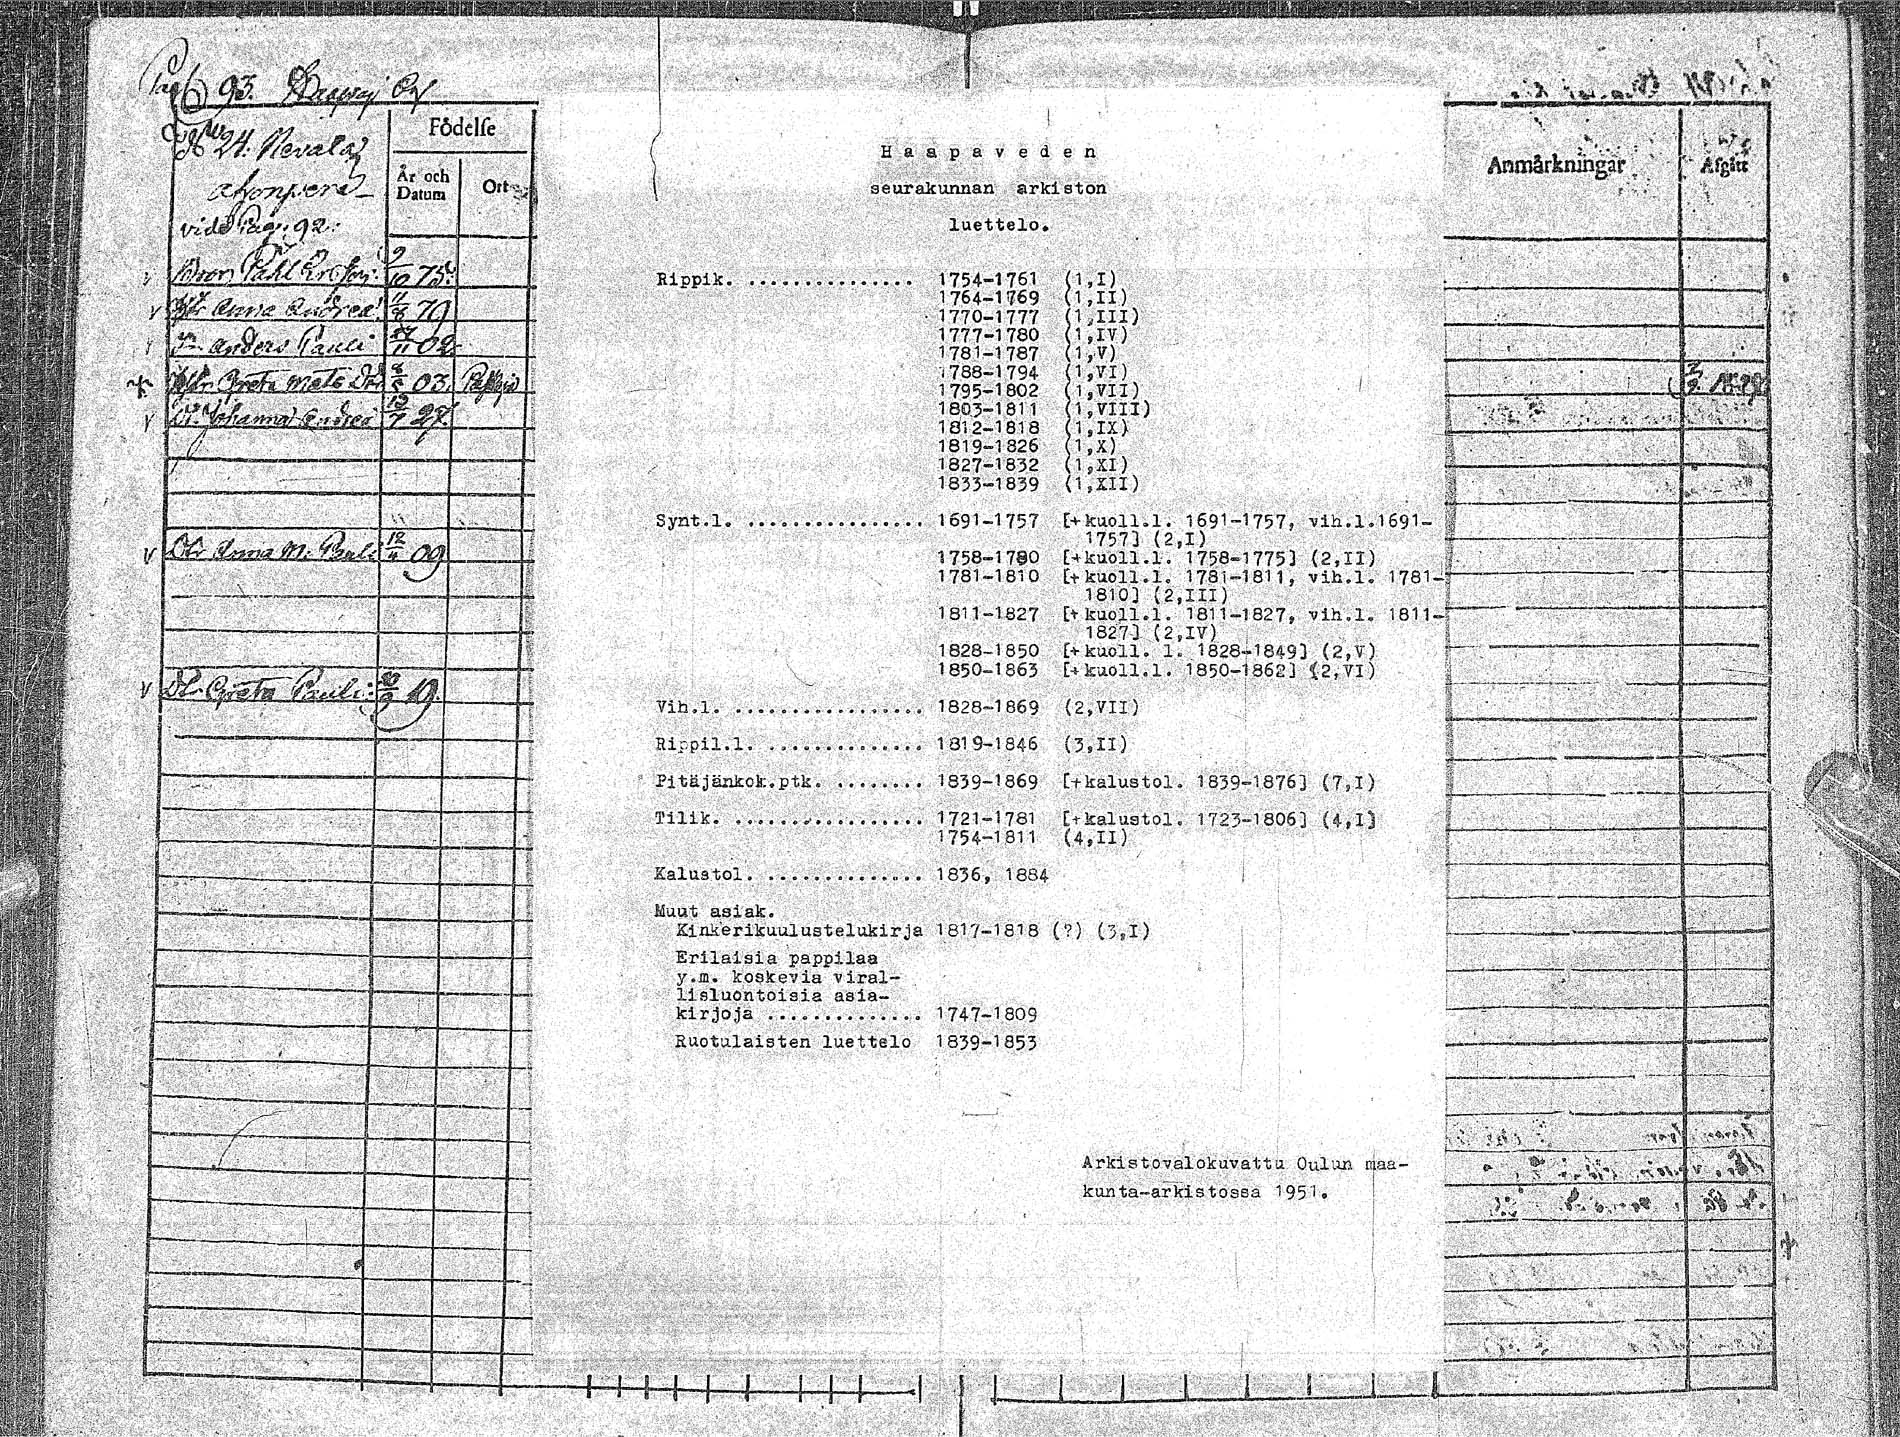 Pag. 93.
No 24. Nevala
vide Pag. 92.
Födelse
År och
Datum
Ort
Påhl
9/10 75.
Anna Andrea
11/8 79
Anders Pauli
02
Greta Mats Dr
03
Dr Johanna Andrea
27
Dtr Anna M. Pauli
12/4 09
Dr Greta Pauli
19.
Haapaveden
seurakunnan arkiston
luettelo.
Rippik. ............... 1754-1761 (1,I)
1764-1769 (1,II)
1770-1777 (1,III)
1777-1780 (1,IV)
1781-1787 (1,V)
1788-1794 (1,VI)
1795-1802 (1,VII)
1803-1811 (1,VIII)
1812-1818 (1,IX)
1819-1826 (1,X)
1827-1832 (1,XI)
1833-1839 (1,XII)
Synt.l. ................ 1691-1757 [+kuoll.l. 1691-1757, vih.l.1691-
1757] (2,I)
1758-1780 [+kuoll.l. 1758-1775] (2,II)
1781-1810 [+kuoll.l. 1781-1811, vih.l. 1781-
1810] (2,III)
1811-1827 [+kuoll.l. 1811-1827, vih.l. 1811-
1827] (2,IV)
1828-1850 [+kuoll. l. 1828-1849] (2,V)
1850-1863 [+kuoll.l. 1850-1862] (2,VI)
Vih.l. ................. 1828-1869 (2,VII)
Rippil.l. .............. 1819-1846 (3,II)
Pitäjänkok.ptk. ........ 1839-1869 [+kalustol. 1839-1876] (7,I)
Tilik. ................. 1721-1781 [+kalustol. 1723-1806] (4,I]
1754-1811 (4,II)
Kalustol. .............. 1836, 1884
Muut asiak.
Kinkerikuulustelukirja 1817-1818 (?) (3,I)
Erilaisia pappilaa
y.m. koskevia viral-
lisluontoisia asia-
kirjoja .............. 1747-1809
Ruotulaisten luettelo 1839-1853
Arkistovalokuvattu Oulun maa-
kunta-arkistossa 1951.
Anmärkningar
Afgått